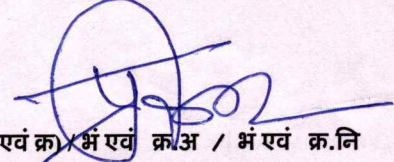 एवं क्र)/भं एवं क्र.अ / भं एवं क्र.नि